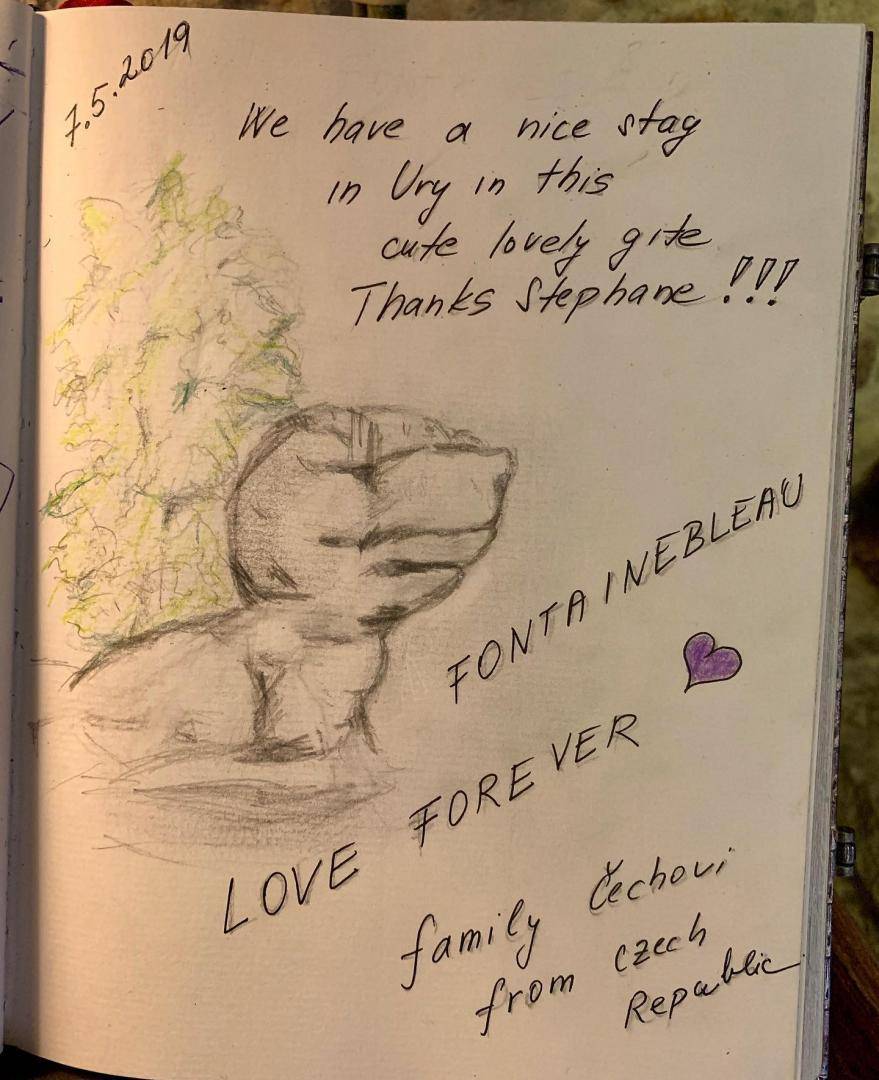 7.5.2019
We have a nice stag
in Ury in this
cute lovely gite
Thanks Stephane !!!
FONTAINEBLEAU
LOVE FOREVER
family Čechovi
from czech
Republic